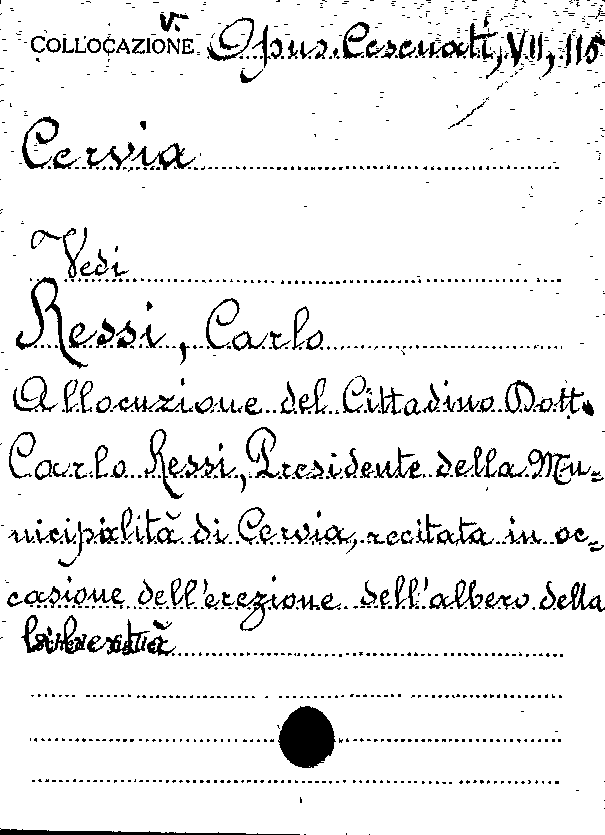 v.
COLLOCAZIONE Opus. Cesenati, VII, 115
Cervia
Vedi
Ressi, Carlo
Allocuzione del Cittadino Dott.
Carlo Ressi, Presidente della Mu=
nicipalità di Cervia, recitata in oc=
casione dell'erezione dell'albero della
libertà